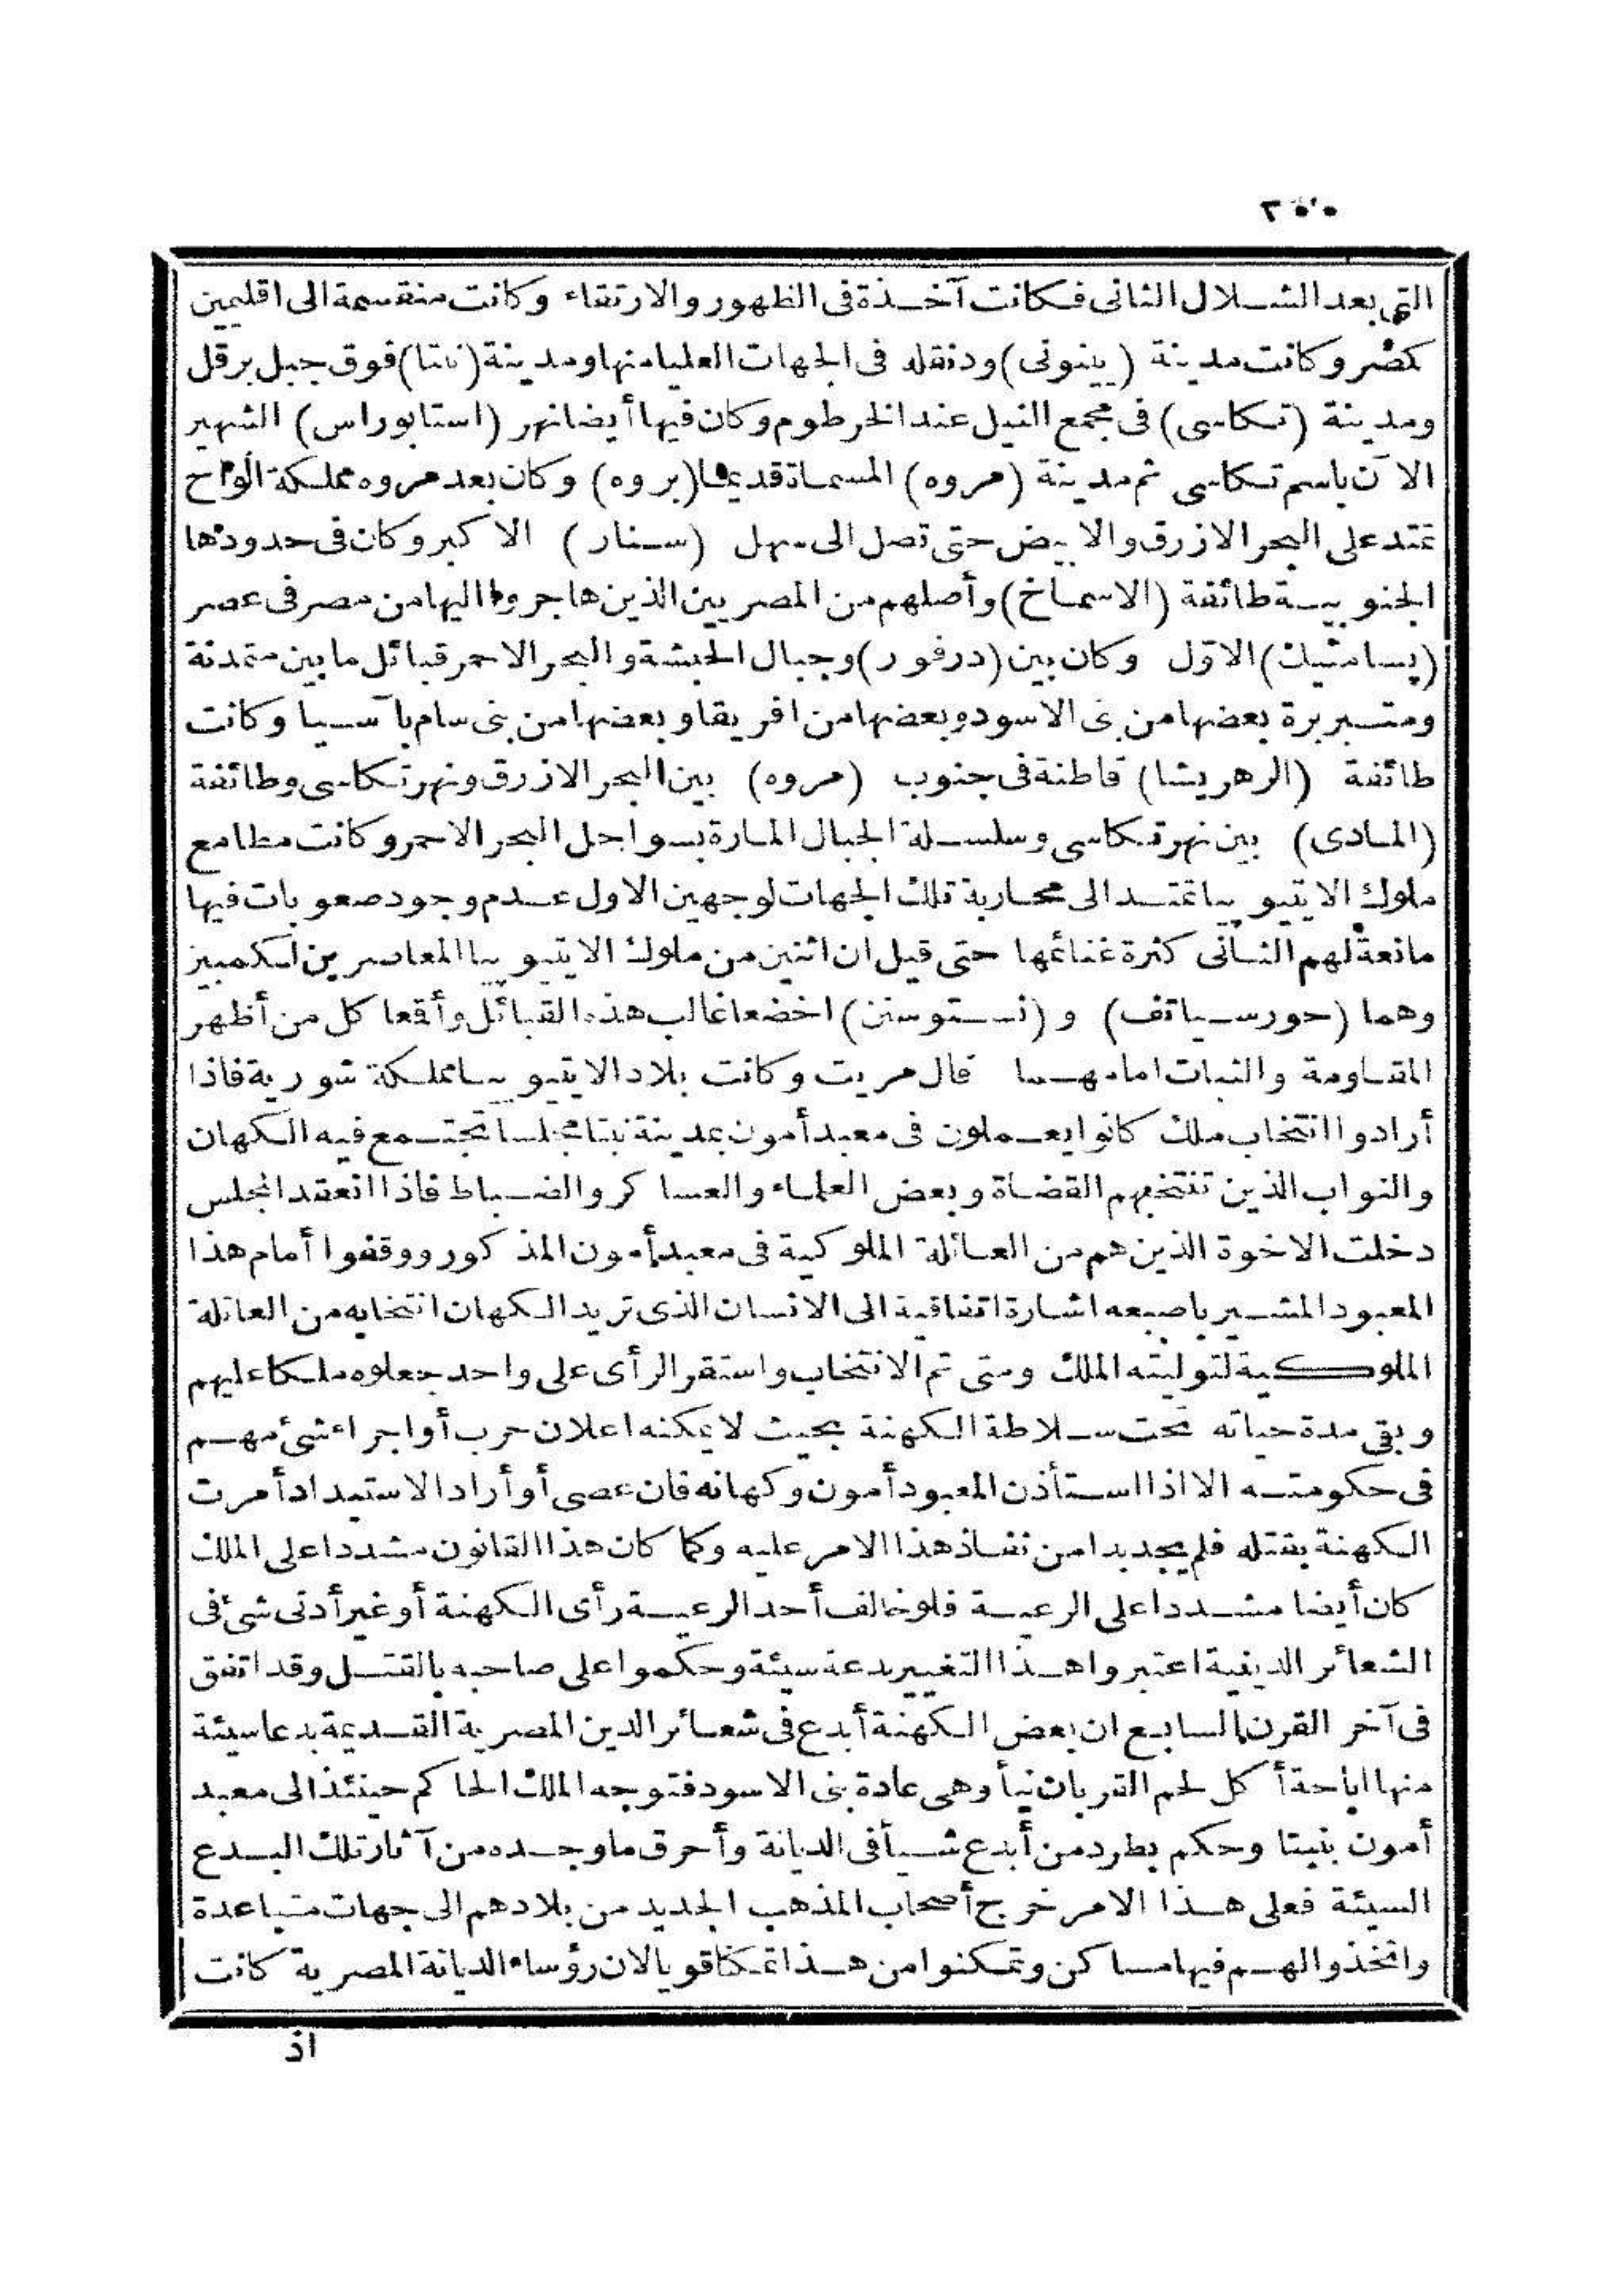 التى بعد الشلال الثانى فكانت آخذة فى الظهور والارتقاء وكانت منقسمة الى اقليمين
كصر وكانت مدينة (پنوتى) ودنقله فى الجهات العليا منها ومدينة (نتا) فوق جبل برقل
ومدينة (تكاسى) فى مجمع النيل عند الخرطوم وكان فيها أيضا نهر (استابوراس) الشهير
الآن باسم تكاسى ثم مدينة (مروه) المسماة قديما (بروه) وكان بعد مروه مملكة ألواح
تمتد على البحر الازرق والابيض حتى تصل الى سهل (سنار) الاكبر وكان فى حدودها
الجنوبية طائفة (الاسماخ) وأصلهم من المصريين الذين هاجروا اليها من مصر فى عصر
(پسامتيك) الاوّل وكان بين (درفور) وجبال الحبشة والبحر الاحمر قبائل ما بين متمدنة
ومتبربرة بعضها من بنى الاسود وبعضها من افريقا وبعضها من بنى سام بآسيا وكانت
طائفة (الرهريشا) قاطنة فى جنوب (مروه) بين البحر الازرق ونهر تكاسى وطائفة
(المادى) بين نهر تكاسى وسلسلة الجبال المارة بسواحل البحر الاحمر وكانت مطامع
ملوك الايتيوپيا تمتد الى محاربة تلك الجهات لوجهين الاول عدم وجود صعوبات فيها
مانعة لهم الثانى كثرة غنائمها حتى قيل ان اثنين من ملوك الايتيوپيا المعاصرين لكمبيز
وهما (حورسياتف) و (نستوسنن) اخضعا غالب هذه القبائل وأقعا كل من أظهر
المقاومة والثبات امامهما قال مريت وكانت بلاد الايتيوپيا مملكة شورية فاذا
أرادوا انتخاب ملك كانوا يعملون فى معبد أمون بمدينة نبتا مجلسا تجتمع فيه الكهان
والنواب الذين تنتخبهم القضاة وبعض العلماء والعساكر والضباط فاذا انعقد المجلس
دخلت الاخوة الذين هم من العائلة الملوكية فى معبد أمون المذكور ووقفوا أمام هذا
المعبود المشير باصبعه اشارة اتفاقية الى الانسان الذى تريد الكهان انتخابه من العائلة
الملوكية لتوليته الملك ومتى تم الانتخاب واستقر الرأى على واحد جعلوه ملكا عليهم
وبقى مدة حياته تحت سلاطة الكهنة بحيث لا يمكنه اعلان حرب أو اجراء شئ مهم
فى حكومته الا اذا استأذن المعبود أمون وكهانه فان عصى أو أراد الاستبداد أمرت
الكهنة بقتله فلم يجد بدا من نفاذ هذا الامر عليه وكما كان هذا القانون مشددا على الملك
كان أيضا مشددا على الرعية فلو خالف أحد الرعية رأى الكهنة أو غير أدنى شئ فى
الشعائر الدينية اعتبروا هذا التغيير بدعة سيئة وحكموا على صاحبه بالقتل وقد اتفق
فى آخر القرن السابع ان بعض الكهنة أبدع فى شعائر الدين المصرية القديمة بدعا سيئة
منها اباحة أكل لحم القربان نيأ وهى عادة بنى الاسود فتوجه الملك الحاكم حينئذ الى معبد
أمون بنبتا وحكم بطرد من أبدع شيأ فى الديانة وأحرق ما وجده من آثار تلك البدع
السيئة فعلى هذا الامر خرج أصحاب المذهب الجديد من بلادهم الى جهات متباعدة
واتخذوا لهم فيها مساكن وتمكنوا من هذا تمكنا قويا لان رؤساء الديانة المصرية كانت
اذ